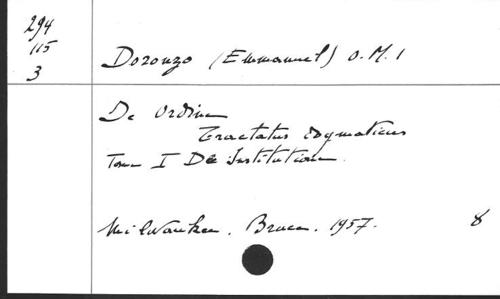 294
115
3
Doronzo (Emmanuel) O.M.I
De Ordine
Tractatus dogmaticus
Tom I De Institutione.
Milwaukee. Bruce. 1957. 8